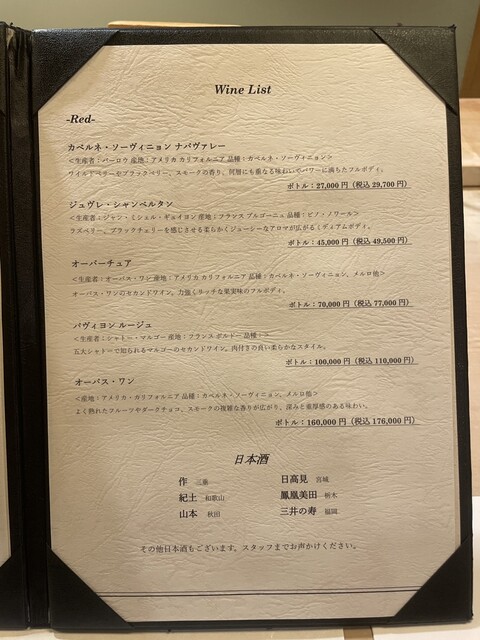 Wine List
-Red-
カベルネ・ソーヴィニョン ナパヴァレー
<生産者：バーロウ 産地：アメリカ カリフォルニア 品種：カベルネ・ソーヴィニョン>
ワイルドベリーやブラックベリー、スモークの香り、何層にも重なる味わいでパワーに満ちたフルボディ。
ボトル：27,000 円（税込 29,700 円）
ジュヴレ・シャンベルタン
<生産者：ジャン・ミシェル・ギュイヨン 産地：フランス ブルゴーニュ 品種：ピノ・ノワール>
ラズベリー、ブラックチェリーを感じさせる柔らかくジューシーなアロマが広がるミディアムボディ。
ボトル：45,000 円（税込 49,500 円）
オーバーチュア
<生産者：オーパス・ワン 産地：アメリカ カリフォルニア 品種：カベルネ・ソーヴィニョン、メルロ他>
オーパス・ワンのセカンドワイン。力強くリッチな果実味のフルボディ。
ボトル：70,000 円（税込 77,000 円）
パヴィヨン ルージュ
<生産者：シャトー・マルゴー 産地：フランス ボルドー 品種：>
五大シャトーで知られるマルゴーのセカンドワイン。肉付きの良い柔らかなスタイル。
ボトル：100,000 円（税込 110,000 円）
オーパス・ワン
<産地：アメリカ・カリフォルニア 品種：カベルネ・ソーヴィニョン、メルロ他>
よく熟れたフルーツやダークチョコ、スモークの複雑な香りが広がり、深みと重厚感のある味わい。
ボトル：160,000 円（税込 176,000 円）
日本酒
作 三重 日高見 宮城
紀土 和歌山 鳳凰美田 栃木
山本 秋田 三井の寿 福岡
その他日本酒もございます。スタッフまでお声かけください。